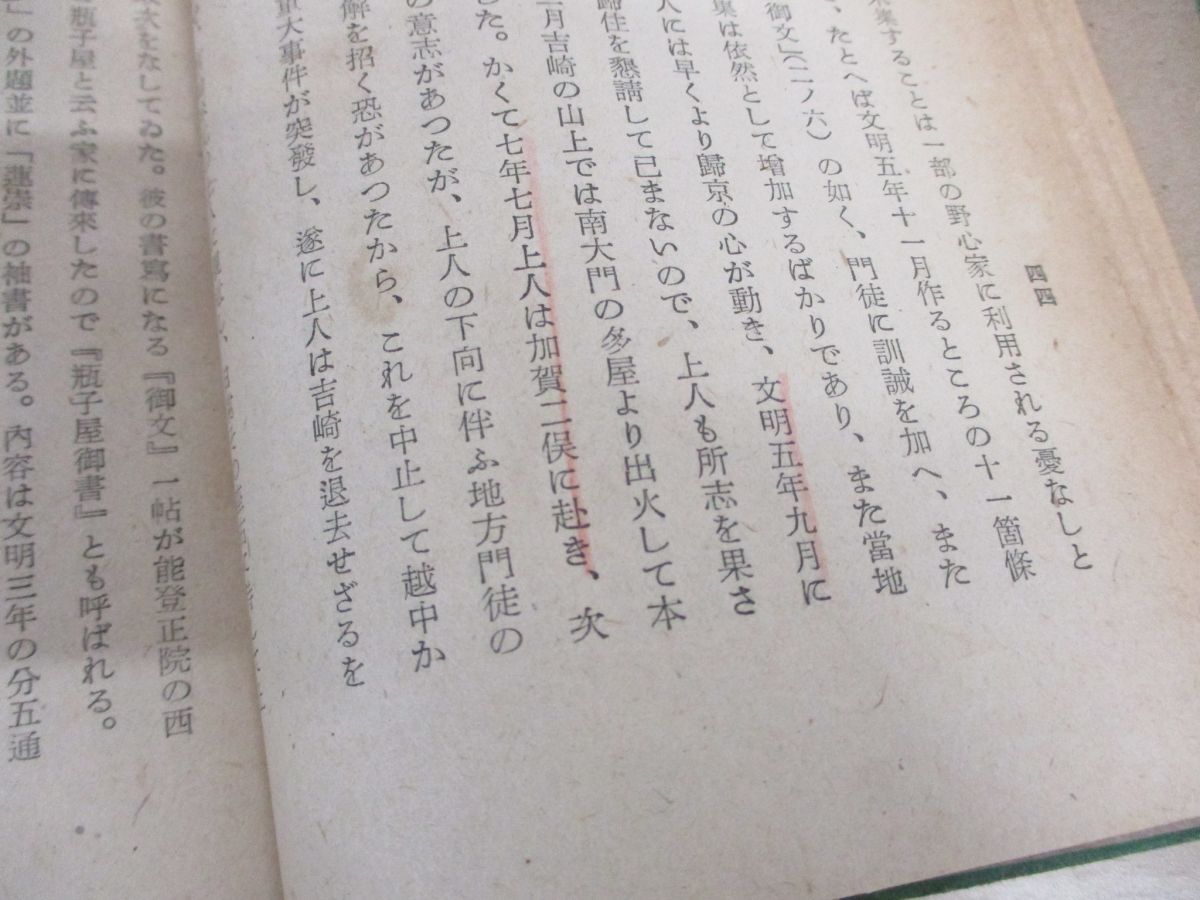 四四
集することは一部の野心家に利用される憂なしと
、たとへば文明五年十一月作るところの十一箇條
御文」(二ノ六)の如く、門徒に訓誡を加へ、また
集は依然として増加するばかりであり、また當地
人には早くより歸京の心が動き、文明五年九月に
歸住を懇請して已まないので、上人も所志を果さ
月吉崎の山上では南大門の多屋より出火して本
した。かくて七年七月上人は加賀二俣に赴き、次
の意志があつたが、上人の下向に伴ふ地方門徒の
解を招く恐があつたから、これを中止して越中か
大事件が突發し、遂に上人は吉崎を退去せざるを
をなしてゐた。彼の書寫になる『御文』一帖が能登正院の西
瓶子屋と云ふ家に傳來したので『瓶子屋御書』とも呼ばれる。
」の外題並に「蓮崇」の袖書がある。內容は文明三年の分五通